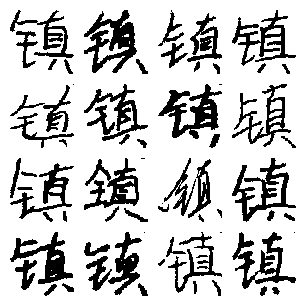 镇镇镇镇
镇镇镇镇
镇镇镇镇
镇镇镇镇